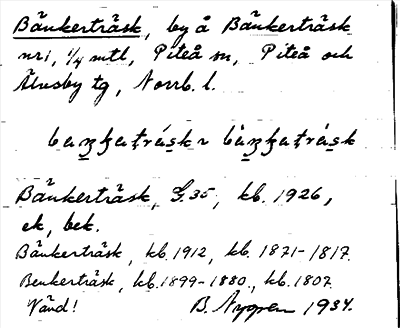 Bänkerträsk, by å Bänkerträsk
nr 1, 1/4 mtl, Piteå sn, Piteå och
Älvsby tg, Norrb. l.
Bänkerträsk, G. 35, kb. 1926,
ek, bek.
Bänkerträsk, kb. 1912, kb. 1821-1817.
Benkerträsk, kb. 1899-1880, kb. 1807.
Vänd! B. Nygren 1934.